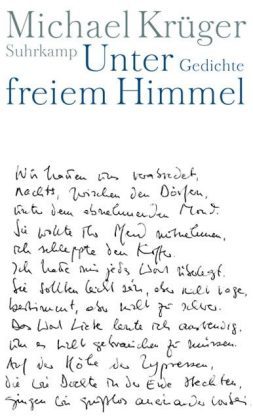 Michael Krüger
Suhrkamp Unter Gedichte
freiem Himmel
Wir hatten uns verabredet,
nachts, zwischen den Dörfern,
unter dem abnehmenden Mond.
Sie wollte ihr Mond mitnehmen,
ich schleppte den Koffer.
Ich hatte mir jedes Wort überlegt.
Sie sollten leicht sein, aber nicht vage,
bestimmt, aber nicht zu schwer.
Das Wort Liebe lernte ich auswendig,
um es nicht gebrauchen zu müssen.
Auf der Höhe der Zypressen,
die wie Dochte in der Erde steckten,
gingen wir grußlos aneinander vorbei.